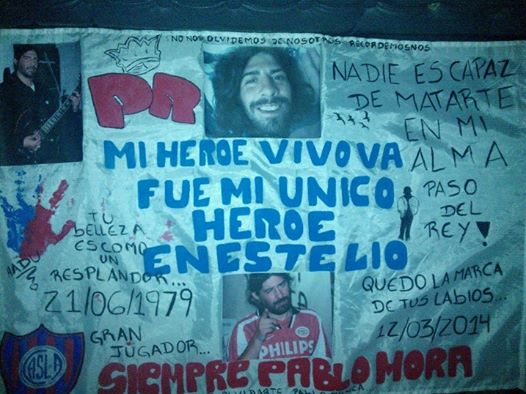 NO NOS OLVIDEMOS DE NOSOTROS RECORDEMOSNOS
PR
NADIE ES CAPAZ
DE MATARTE
EN MI
ALMA
MI HEROE VIVO VA
FUE MI UNICO
HEROE
EN ESTE LIO
PASO
DEL
REY!
TU
BELLEZA
ES COMO
UN
RESPLANDOR...
21/06/1979
GRAN
JUGADOR...
QUEDO LA MARCA
DE TUS LABIOS...
12/03/2014
PHILIPS
CASLA
SIEMPRE PABLO MORA